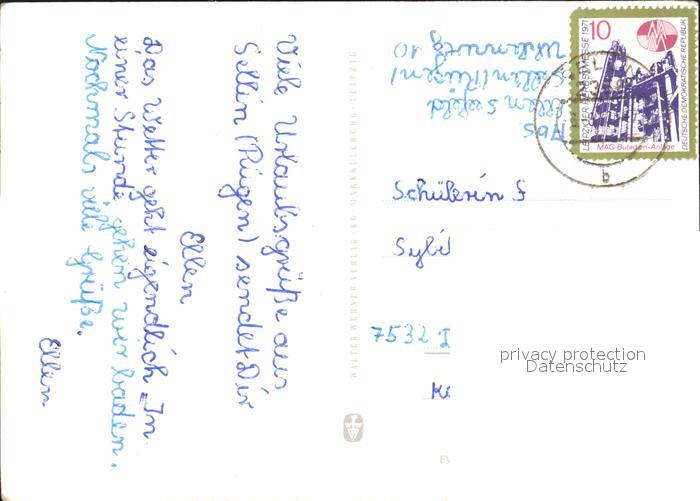 Viele Urlaubsgrüße aus
Sellin (Rügen) sendet Dir
Ellen
Das Wetter geht eigendlich. In
einer Stunde gehen wir baden.
Nochmals viele Grüße.
Ellen
WALTER WERNER VERLAG KG · MARKKLEEBERG · LEIPZIG
Abs
Ellen
Sellin (Rügen)
10
10
LEIPZIGER HERBSTMESSE 1971
DEUTSCHE DEMOKRATISCHE REPUBLIK
MAG-Butadien-Anlage
b
Schülerin
Sybil
7532
privacy protection
Datenschutz